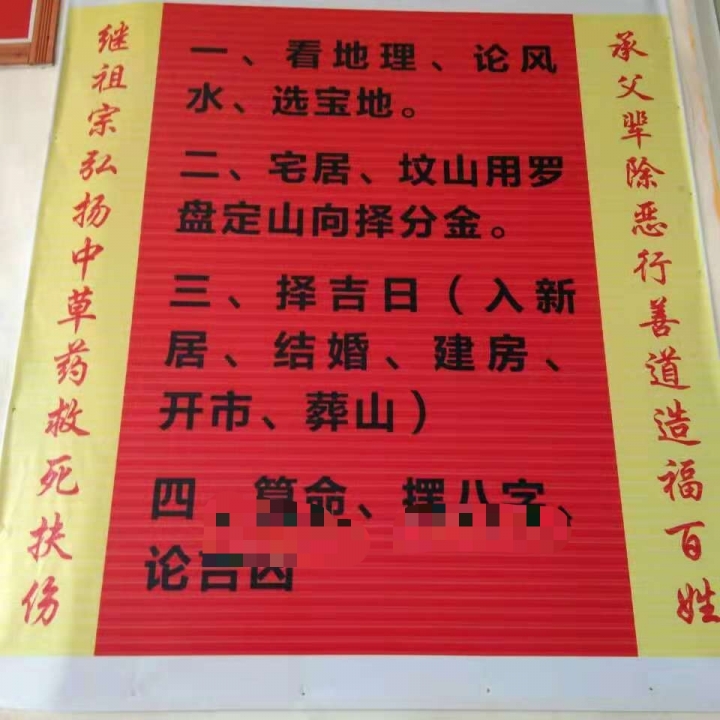 继祖宗弘扬中草药救死扶伤
一、看地理、论风
水、选宝地。
二、宅居、坟山用罗
盘定山向择分金。
三、择吉日（入新
居、结婚、建房、
开市、葬山）
四、算命、摆八字、
论吉凶
承父辈除恶行善道造福百姓